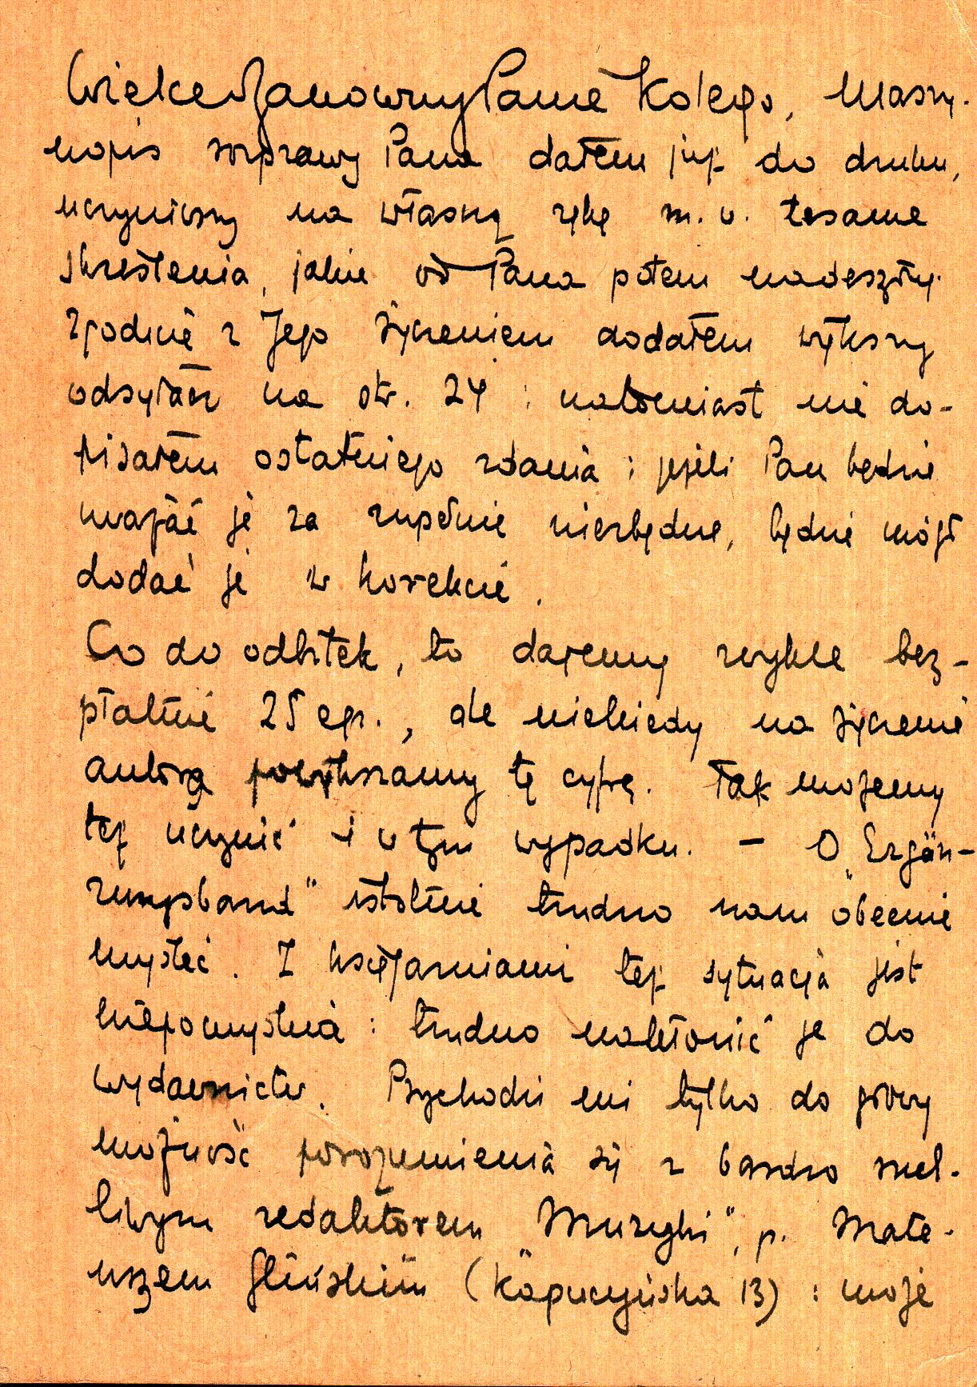 Wielce Szanowny Panie Kolego, Maszy-
nopis rozprawy Pana dałem już do druku,
uczyniwszy na własną rękę m. w. tesame
skreślenia, jakie od Pana potem nadeszły.
Zgodnie z Jego życzeniem dodałem większy
odsyłacz na str. 24 ; natomiast nie do-
pisałem ostatniego zdania ; jeżeli Pan będzie
uważać je za zupełnie niezbędne, będzie mógł
dodać je w korekcie.
Co do odbitek, to dajemy zwykle bez-
płatnie 25 egz., ale niekiedy na życzenie
autora powiększamy tę cyfrę. Tak możemy
też uczynić i w tym wypadku. — O „Ergän-
zungsband" istotnie trudno nam obecnie
myśleć. Z księgarniami też sytuacja jest
niepomyślna : trudno nakłonić je do
wydawnictw. Przychodzi mi tylko do głowy
możność porozumienia się z bardzo rzet-
liwym redaktorem „Muzyki", p. Mate-
uszem Glińskim (Kapucyńska 13) : może